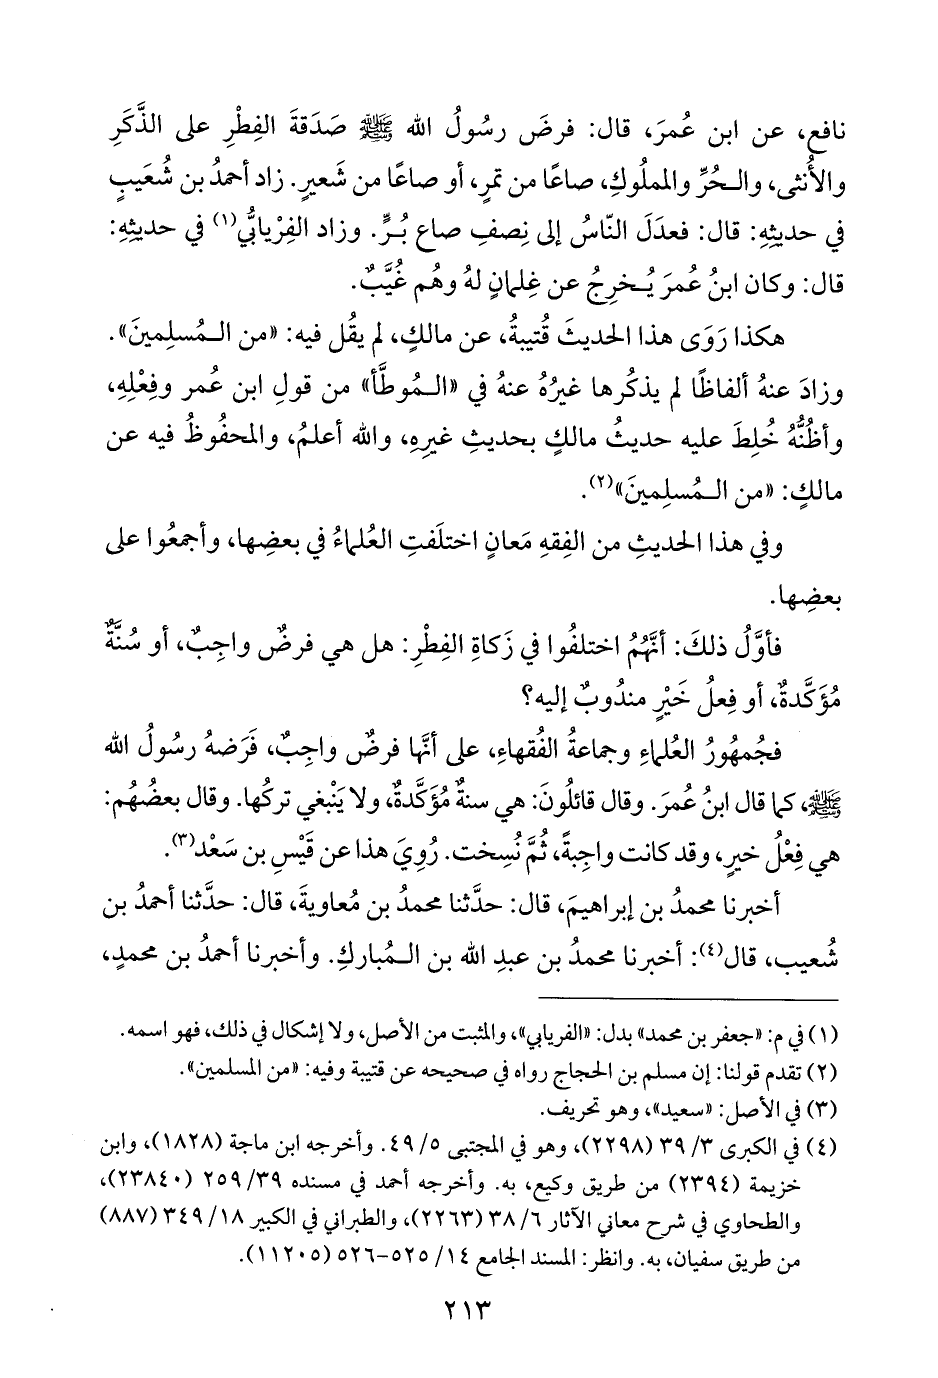 نافع، عن ابن عُمرَ، قال: فرضَ رسُولُ الله ﷺ صَدَقةَ الفِطْرِ على الذَّكَرِ
والأُنثى، والـحُرِّ والمملُوكِ، صاعًا من تمرٍ، أو صاعًا من شَعيرٍ. زاد أحمدُ بن شُعَيبٍ
في حديثِهِ: قال: فعدَلَ النّاسُ إلى نِصفِ صاع بُـرٍّ. وزاد الفِرْيابيُّ(١) في حديثِهِ:
قال: وكان ابنُ عُمرَ يُـخرِجُ عن غِلمانٍ لهُ وهُم غُيَّبٌ.
هكذا رَوَى هذا الحديثَ قُتيبةُ، عن مالكٍ، لم يقُل فيه: «من الـمُسلِمينَ».
وزادَ عنهُ ألفاظًا لم يذكُرها غيرُهُ عنهُ في «الـمُوطَّأ» من قولِ ابن عُمر وفِعْلِهِ،
وأظُنُّهُ خُلِطَ عليه حديثُ مالكٍ بحديثِ غيرِهِ، والله أعلمُ، والمحفُوظُ فيه عن
مالكٍ: «من الـمُسلِمينَ»(٢).
وفي هذا الحديثِ من الفِقهِ مَعانٍ اختلَفتِ العُلماءُ في بعضِها، وأجمعُوا على
بعضِها.
فأوَّلُ ذلكَ: أنَّهُمُ اختلفُوا في زَكاةِ الفِطْرِ: هل هي فرضٌ واجِبٌ، أو سُنَّةٌ
مُؤَكَّدةٌ، أو فِعلُ خَيْرٍ مندُوبٌ إليه؟
فجُمهُورُ العُلماءِ وجماعةُ الفُقهاءِ، على أنَّها فرضٌ واجِبٌ، فَرَضهُ رسُولُ الله
ﷺ، كما قال ابنُ عُمرَ. وقال قائلُونَ: هي سنةٌ مُؤَكَّدةٌ، ولا يَنْبغي تركُها. وقال بعضُهُم:
هي فِعْلُ خيرٍ، وقد كانت واجِبةً، ثُمَّ نُسِخت. رُوِيَ هذا عن قَيْسِ بن سَعْد(٣).
أخبرنا محمدُ بن إبراهيمَ، قال: حدَّثنا محمدُ بن مُعاويةَ، قال: حدَّثنا أحمدُ بن
شُعيب، قال(٤): أخبرنا محمدُ بن عبدِ الله بن الـمُبارَكِ. وأخبرنا أحمدُ بن محمدٍ،
(١) في م: «جعفر بن محمد» بدل: «الفريابي»، والمثبت من الأصل، ولا إشكال في ذلك، فهو اسمه.
(٢) تقدم قولنا: إن مسلم بن الحجاج رواه في صحيحه عن قتيبة وفيه: «من المسلمين».
(٣) في الأصل: «سعيد»، وهو تحريف.
(٤) في الكبرى ٣/ ٣٩ (٢٢٩٨)، وهو في المجتبى ٥/ ٤٩. وأخرجه ابن ماجة (١٨٢٨)، وابن
خزيمة (٢٣٩٤) من طريق وكيع، به. وأخرجه أحمد في مسنده ٣٩/ ٢٥٩ (٢٣٨٤٠)،
والطحاوي في شرح معاني الآثار ٦/ ٣٨ (٢٢٦٣)، والطبراني في الكبير ١٨/ ٣٤٩ (٨٨٧)
من طريق سفيان، به. وانظر: المسند الجامع ١٤/ ٥٢٥-٥٢٦ (١١٢٠٥).
٢١٣